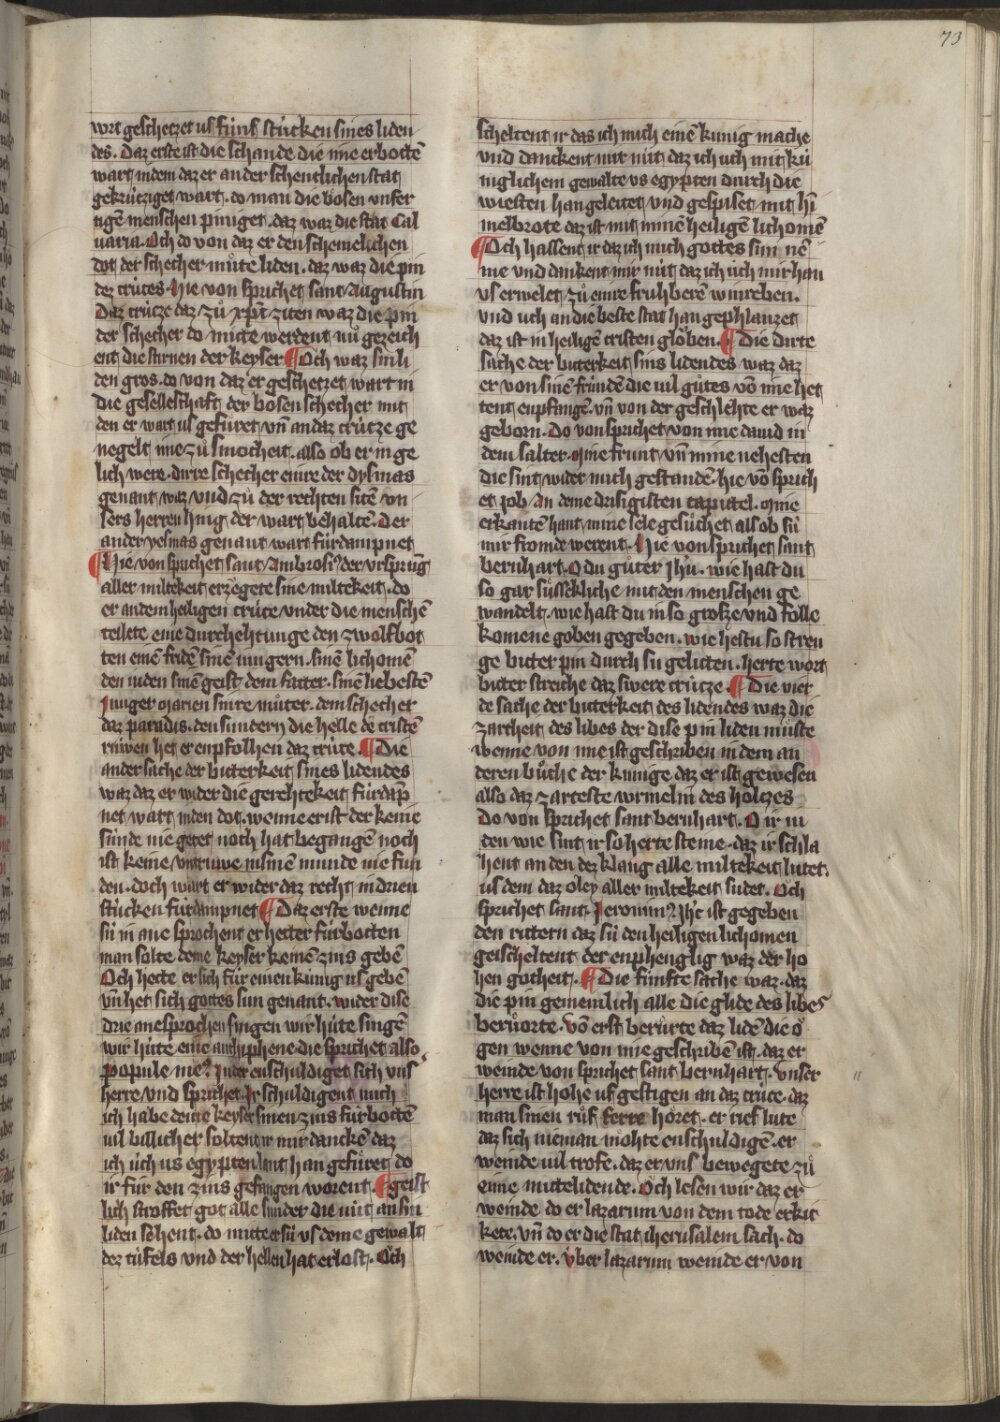 73
wrt geschetzet us fúnf stúcken sines liden
des. Daz erste ist die schande die ime erbottē
wart indem daz er an der schentlichen stat
gekrúcziget wart. do man die bösen unser
tigē menschen piniget. daz waz die stat Cal
uaria. Och do von daz er den schemelichen
dot der schecher můste liden. daz waz die pin
dez crúces. Hie von sprichet sant Augustin
Daz crúcze daz zů xp̄i ziten waz die pin
der schecher do mitte werdent nů gezeich
ent die stirnen der keyser Och waz sin li
den gros. do von daz er geschetzet wart in
die geselleschaft der bösen schecher mit
den er wart us gefüret vn̄ an daz crútze ge
negelt ime zů smocheit. also ob er in ge
lich were. dirre schecher einre der dysmas
genant waz und zů der rechten sitē vn
sers herren hing der wart behaltē. Der
ander yesmas genant wart fúrdampnet
Hie von sprichet sant Ambrosiꝰ der vrsprūg
aller miltekeit erzögete sine miltekeit. do
er an dem heiligen crúce vnder die menschē
teilete eine durchehtunge den zwolfbot
ten einē fridē sinē jungern. sinē lichomē
den iuden sinē geist dem fatter. sinē liebestē
Junger marien sinre můter. dem schecher
daz paradis. den sundern die helle dē cristē
rúwen het er enpfolhen daz crúce. Die
ander sache der bitterkeit sines lidendes
waz daz er wider die gerehtekeit fúrdāp
net wart in den dot. wenne er ist der keine
súnde nie getet noch hat begangē noch
ist keine vntruwe in sinē munde nie fun
den. doch wart er wider daz recht in drien
stúcken fúrdampnet Daz erste wenne
sú in ane sprochent er hette fúrbotten
man solte deme keyser keinē zins gebē
Och hette er sich fúr einen kúnig us gebē
vn̄ het sich gottes sun genant. wider dise
drie anesprochen singen wir húte singē
wir húte eine antiphene die sprichet also.
popule meꝰ. In der enschuldiget sich uns
herre und sprichet. Ir schuldigent mich
ich habe deme keyser sinen zins fúrbottē
uil billicher soltent ir mir danckē daz
ich úch us egypten lant han gefüret do
ir fúr den zins gefangen worent. geist
lich stroffet got alle súnder die nút an sin
liden sehent. do mitte er sú us deme gewalt
dez túfels und der hellen hat erlost. Och
scheltent ir das ich mich einē kunig mache
und danckent mir nút daz ich úch mit kú
niglichem gewalte us egypten durch die
wiesten han geleitet und gespiset mit hi
melbrote daz ist mit minē heiligē lichomē
Och hassent ir daz ich mich gottes sun nē
me und dankent mir nút daz ich úch mir han
us erwelet zů einre fruhberē winreben.
und úch an die beste stat han gephlanzet
daz ist in heiligē cristen glöben. Die dirte
sache der bitterkeit sins lidendes waz daz
er von sinē frúndē die uil gůtes vō ime het
tent enpfangē vn̄ von der geschlehte er waz
geborn. Do von sprichet von ime dauid in
dem salter. Mine frunt vn̄ mine nehesten
die sint wider mich gestandē. hie vō sprich
et Job an deme drisigisten capittel. Mine
erkantē hant mine sele gesůchet als ob sú
mir fromde werent. Hie von sprichet sant
bernhart. O du gůter Jhu. wie hast du
so gar sússekliche mit den menschen ge
wandelt. wie hast du in so grosze und folle
komene goben gegeben. wie hestu so stren
ge bitter pin durch sú gelitten. herte wort
bitter streiche daz swere crúcze. Die vier
de sache der bitterkeit des lidendes waz die
zartheit des libes der dise pin liden můste
wenne von ime ist geschriben in dem an
deren bůche der kunige daz er ist gewesen
also daz zarteste wrmelin des holczes
Do von sprichet sant bernhart. O ir iu
den wie sint ir so herte steine. daz ir schla
hent an den dez klang alle miltekeit lutet.
us dem daz oley aller miltekeit sudet. Och
sprichet sant Jeronimꝰ Jhc ist gegeben
den rittern daz sú den heiligen lichomen
geischeltent der enphenglig waz der ho
hen gotheit. Die fúnfte sache waz. daz
die pin gemeinlich alle die glide des libes
berůrte. Vō erst berůrte daz lidē die ö
gen wenne von ime geschribē ist. daz er
weinde von sprichet sant bernhart. Vnser
herre ist hohe uf gestigen an daz crúce. daz
man sinen růf ferre höret. er rief lute
daz sich nieman möhte enschuldigē. er
weinde uil trofe. daz er uns bewegete zů
eine mittelidende. Och lesen wir daz er
weinde do er lazarum von dem tode erkic
kete. vn̄ do er die stat iherusalem sach. do
weinde er. Vber lazarum weinde er von